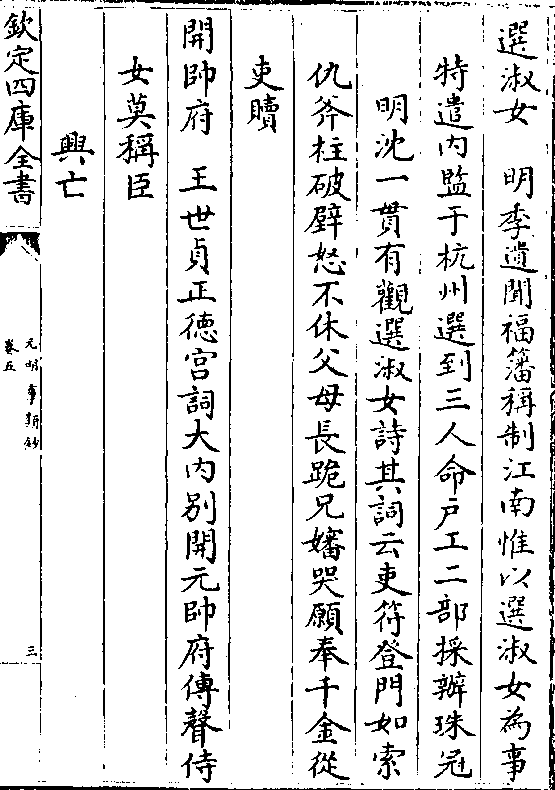 選淑女　明季遺聞福籓稱制江南惟以選淑女為事
特遣内監于杭州選到三人命戶工二部採辦珠冠
明沈一貫有觀選淑女詩其詞云吏符登門如索
仇斧柱破壁怒不休父母長跪兄嬸哭願奉千金從
吏贖
開帥府　王世貞正德宮詞大内别開元帥府傳聲侍
女莫稱臣
興亡
欽定四庫全書
元明事類鈔
卷五
三